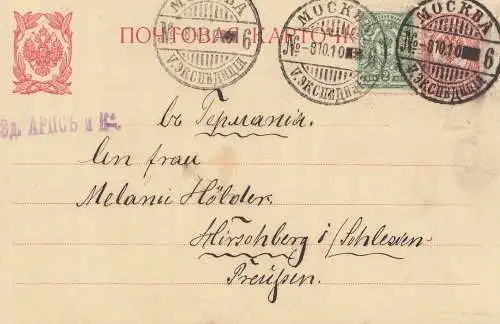 ПОЧТОВАЯ КАРТОЧКА
МОСКВА
8 10 10
6
V. ЭКСПЕДИЦIЯ
МОСКВА
8 10 10
6
V. ЭКСПЕДИЦIЯ
МОСКВА
8 10 10
6
V. ЭКСПЕДИЦIЯ
Эд. АРПСЪ и Ко.
въ Германiя.
An frau
Melanie Hölder.
Hirschberg i/Schlesien
Preußen.